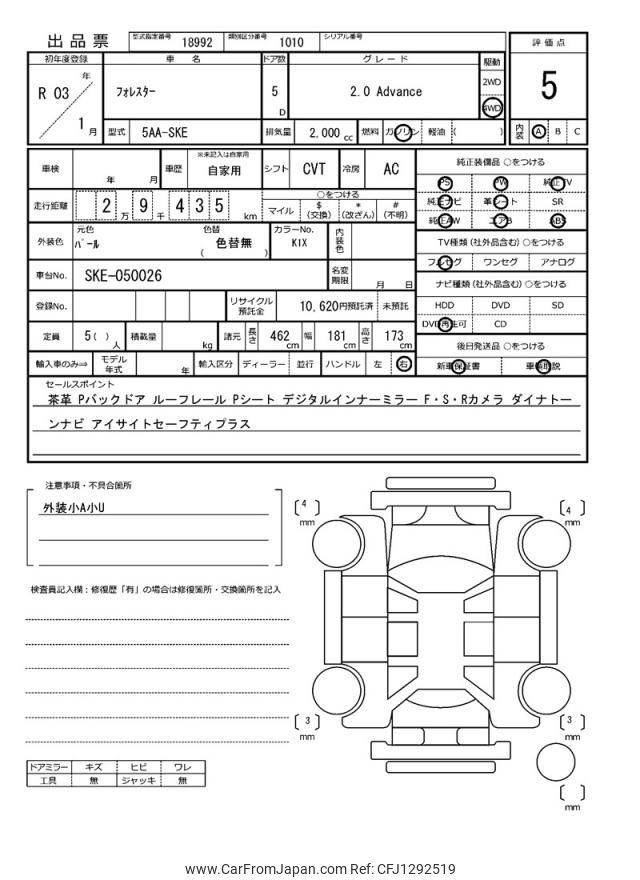 出品票 型式指定番号 18992 類別区分番号 1010 シリアル番号
評価点
5
内装 A B C
初年度登録 車名 ドア数 グレード 駆動
R 03 年 フォレスター 5 D 2.0 Advance 2WD
4WD
1 月 型式 5AA-SKE 排気量 2,000 cc 燃料 ガソリン 軽油 ( )
車検 年 月 車歴 ※未記入は自家用 自家用 シフト CVT 冷房 AC
走行距離 2 万 9 千 4 3 5 km ○をつける
マイル $ (交換) * (改ざん) # (不明)
外装色 元色 パール 色替 色替無 ( ) カラーNo. K1X 内装色
車台No. SKE-050026 名変期限 月 日
登録No. リサイクル預託金 10,620円預託済 未預託
定員 5( ) 人 積載量 kg 諸元 長さ 462 cm 幅 181 cm 高さ 173 cm
輸入車のみ⇒ モデル年式 年 輸入区分 ディーラー 並行 ハンドル 左 右
純正装備品 ○をつける
PS PW 純正TV
純正ナビ 革シート SR
純正AW エアB ABS
TV種類 (社外品含む) ○をつける
フルセグ ワンセグ アナログ
ナビ種類 (社外品含む) ○をつける
HDD DVD SD
DVD再生可 CD
後日発送品 ○をつける
新車保証書 車輌取説
セールスポイント
茶革 Pバックドア ルーフレール Pシート デジタルインナーミラー F・S・Rカメラ ダイナトー
ンナビ アイサイトセーフティプラス
注意事項・不具合箇所
外装小A小U
検査員記入欄：修復歴「有」の場合は修復箇所・交換箇所を記入
[ 4 ] mm
[ 4 ] mm
[ 3 ] mm
[ 3 ] mm
[ ] mm
ドアミラー キズ ヒビ ワレ
工具 無 ジャッキ 無
www.CarFromJapan.com Ref: CFJ1292519